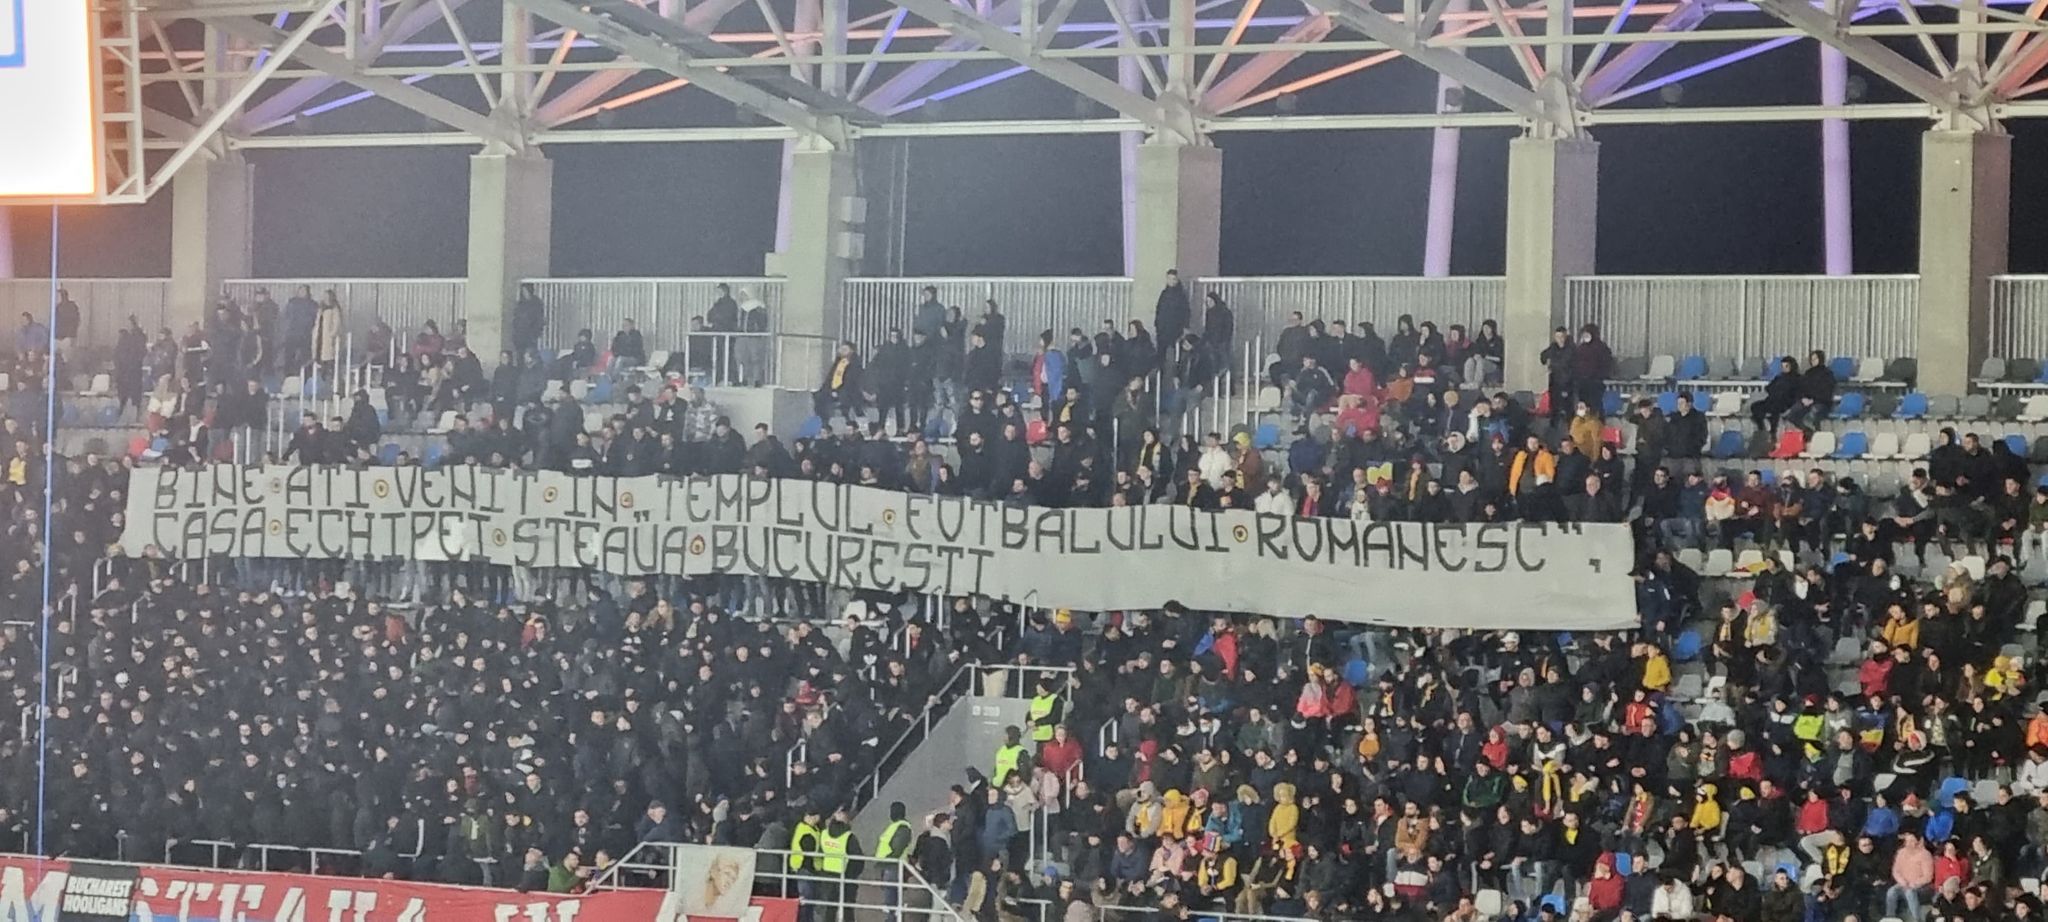 BINE ATI VENIT IN "TEMPLUL FOTBALULUI ROMANESC",
CASA ECHIPEI STEAUA BUCURESTI
BUCHAREST
HOOLIGANS